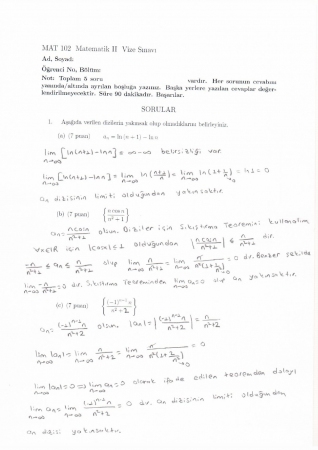 MAT 102 Matematik II Vize Sınavı
Ad, Soyad:
Öğrenci No, Bölüm:
Not: Toplam 5 soru vardır. Her sorunun cevabını
yanında/altında ayrılan boşluğa yazınız. Başka yerlere yazılan cevaplar değer-
lendirilmeyecektir. Süre 90 dakikadır. Başarılar.
SORULAR
1. Aşağıda verilen dizilerin yakınsak olup olmadıklarını belirleyiniz.
(a) (7 puan) aₙ = ln(n+1) − ln n
lim n→∞ [ln(n+1)−ln n] = ∞−∞ belirsizliği var.
lim n→∞ [ln(n+1)−ln n] = lim n→∞ ln(n+1/n) = lim n→∞ ln(1+1/n) = ln 1 = 0
aₙ dizisinin limiti olduğundan yakınsaktır.
(b) (7 puan) {n cos n / n²+1}
aₙ = n cos n / n²+1 olsun. Diziler için Sıkıştırma Teoremini kullanalım.
∀n∈ℝ için |cos n| ≤ 1 olduğundan |n cos n / n²+1| ≤ n / n²+1 dir.
−n / n²+1 ≤ aₙ ≤ n / n²+1 olup lim n→∞ n / n²+1 = lim n→∞ = 0 dır. Benzer şekilde
lim n→∞ −n / n²+1 = 0 dır. Sıkıştırma Teoreminden lim n→∞ aₙ = 0 olup aₙ yakınsaktır.
(c) (7 puan) {(−1)ⁿ⁺¹ n / n²+2}
aₙ = (−1)ⁿ⁺¹ n / n²+2 olsun. |aₙ| = |(−1)ⁿ⁺¹ n / n²+2| = n / n²+2
lim n→∞ |aₙ| = lim n→∞ n / n²+2 = lim n→∞ n / n²(1+2/n²) = 0
lim n→∞ |aₙ| = 0 ⇒ lim n→∞ aₙ = 0 olarak ifade edilen teoremden dolayı
lim n→∞ aₙ = lim n→∞ (−1)ⁿ⁺¹ n / n²+2 = 0 dır. aₙ dizisinin limiti olduğundan
aₙ dizisi yakınsaktır.